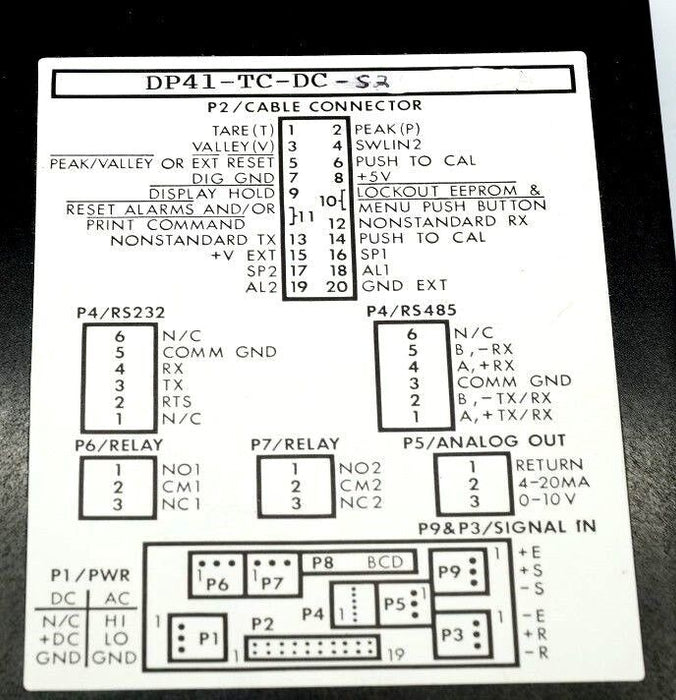 DP41-TC-DC-S2
P2/CABLE CONNECTOR
TARE(T) 1 2 PEAK(P)
VALLEY(V) 3 4 SWLIN2
PEAK/VALLEY OR EXT RESET 5 6 PUSH TO CAL
DIG GND 7 8 +5V
DISPLAY HOLD 9 10 LOCKOUT EEPROM &
RESET ALARMS AND/OR 11 MENU PUSH BUTTON
PRINT COMMAND 12 NONSTANDARD RX
NONSTANDARD TX 13 14 PUSH TO CAL
+V EXT 15 16 SP1
SP2 17 18 AL1
AL2 19 20 GND EXT
P4/RS232
6 N/C
5 COMM GND
4 RX
3 TX
2 RTS
1 N/C
P4/RS485
6 N/C
5 B,-RX
4 A,+RX
3 COMM GND
2 B,-TX/RX
1 A,+TX/RX
P6/RELAY
1 NO1
2 CM1
3 NC1
P7/RELAY
1 NO2
2 CM2
3 NC2
P5/ANALOG OUT
1 RETURN
2 4-20MA
3 0-10V
P9&P3/SIGNAL IN
P1/PWR
DC AC
N/C HI
+DC LO
GND GND
1 P6 1 P7 P8 BCD P9 1 +E
+S
-S
1 P1 P2 P4 1 P5 1 P3 1 -E
+R
1 19 -R